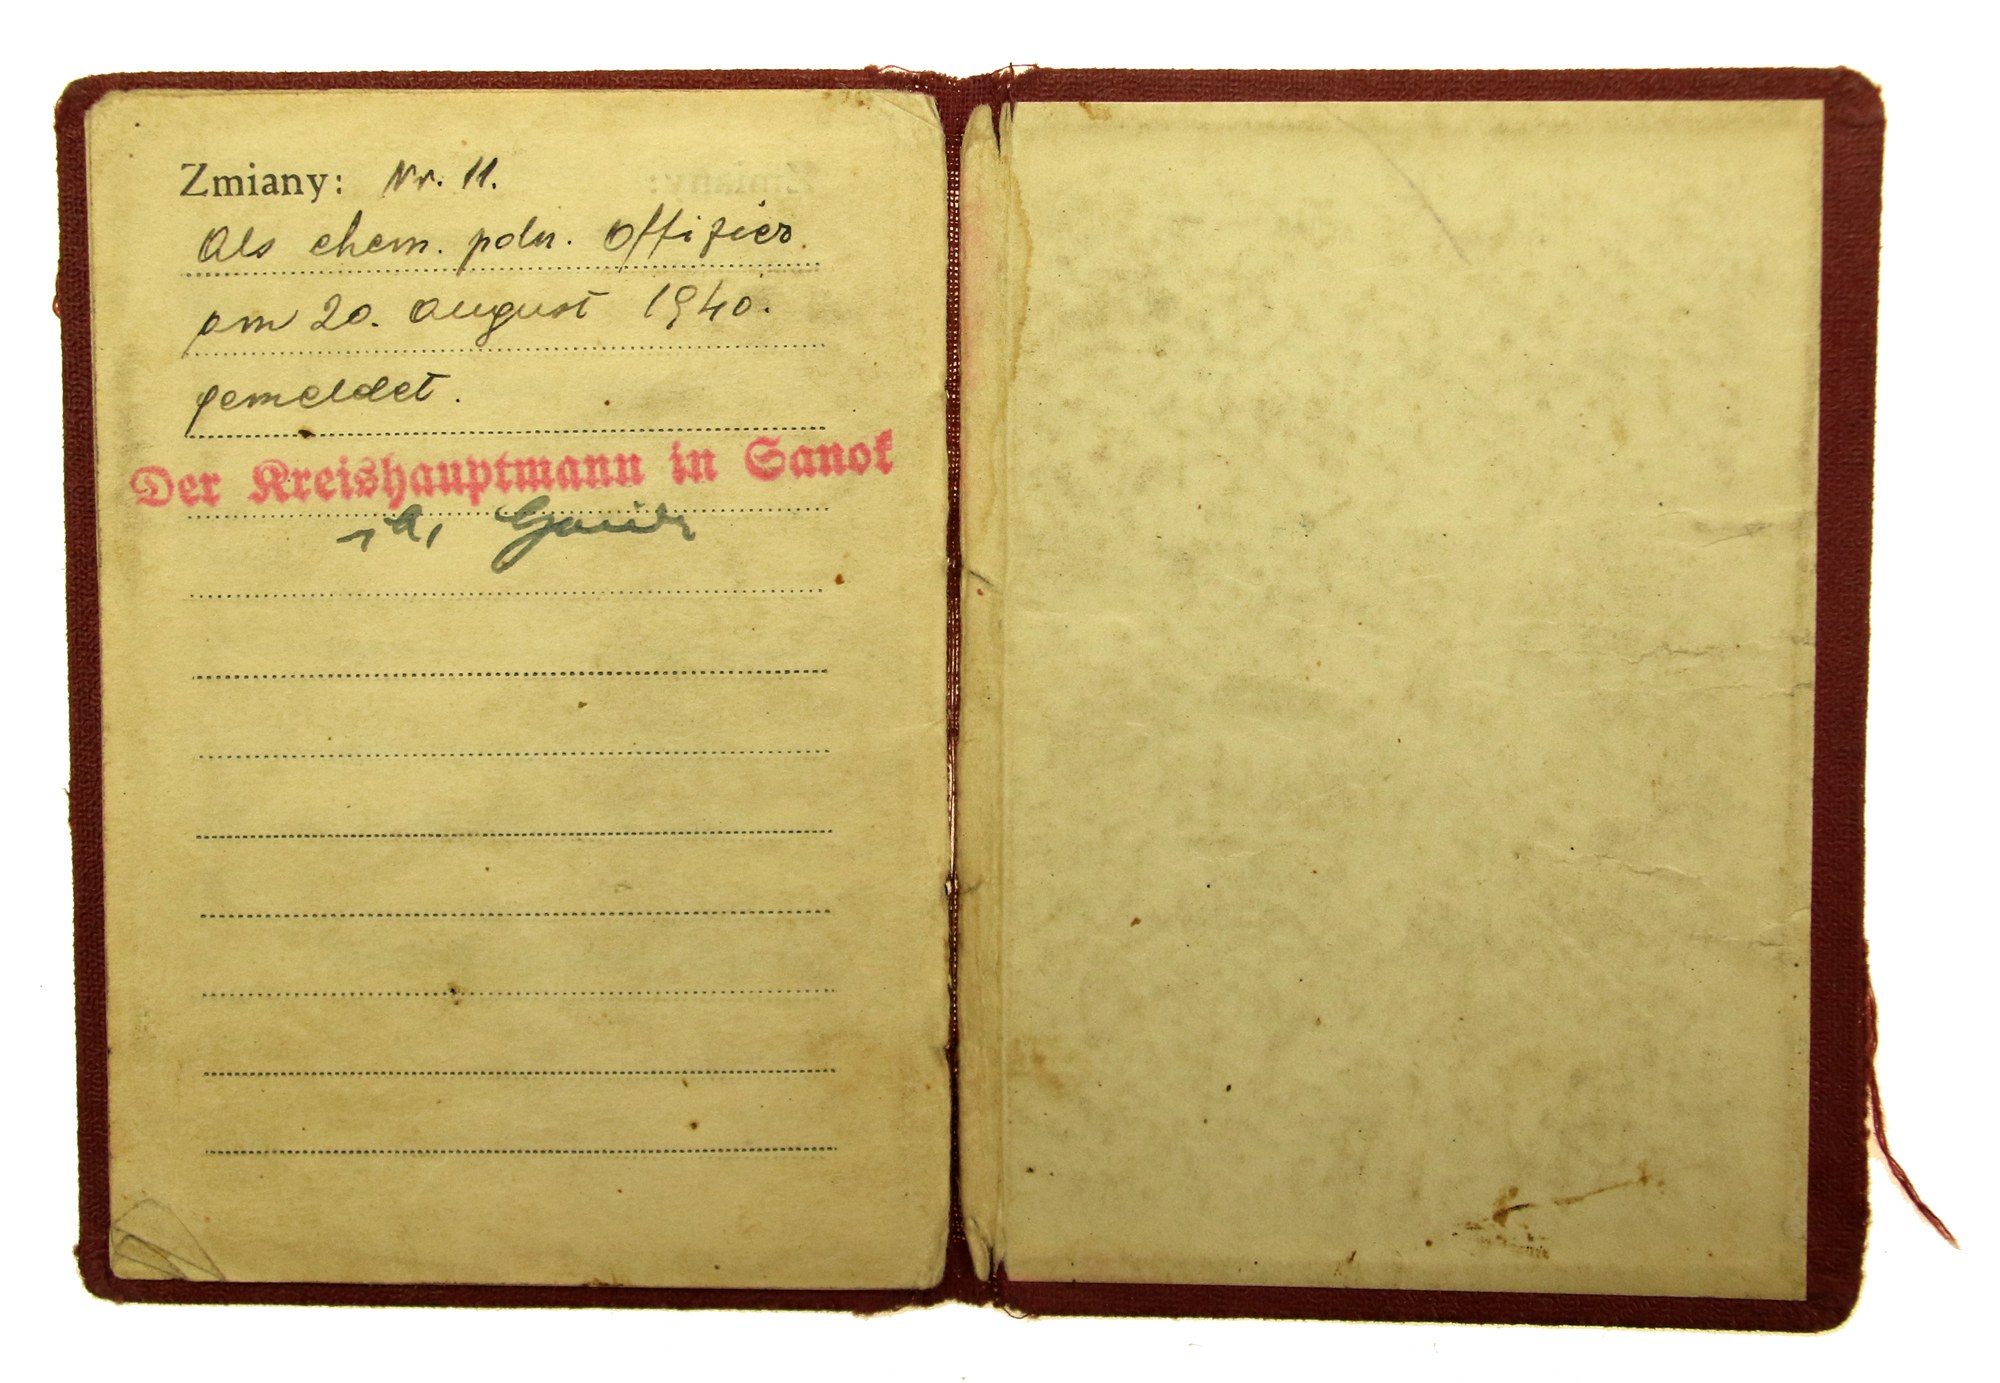 Zmiany: Nr. 11.
Als chem. poln. Offizier.
am 20. august 1940.
gemeldet.
Der Kreishauptmann in Sanok